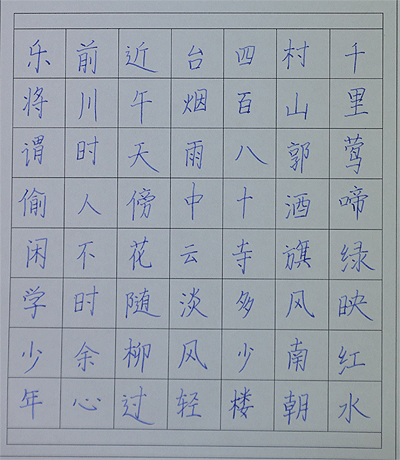 千里莺啼绿映红水
村山郭酒旗风南朝
四百八十寺多少楼
台烟雨中云淡风轻
近午天傍花随柳过
前川时人不时余心
乐将谓偷闲学少年